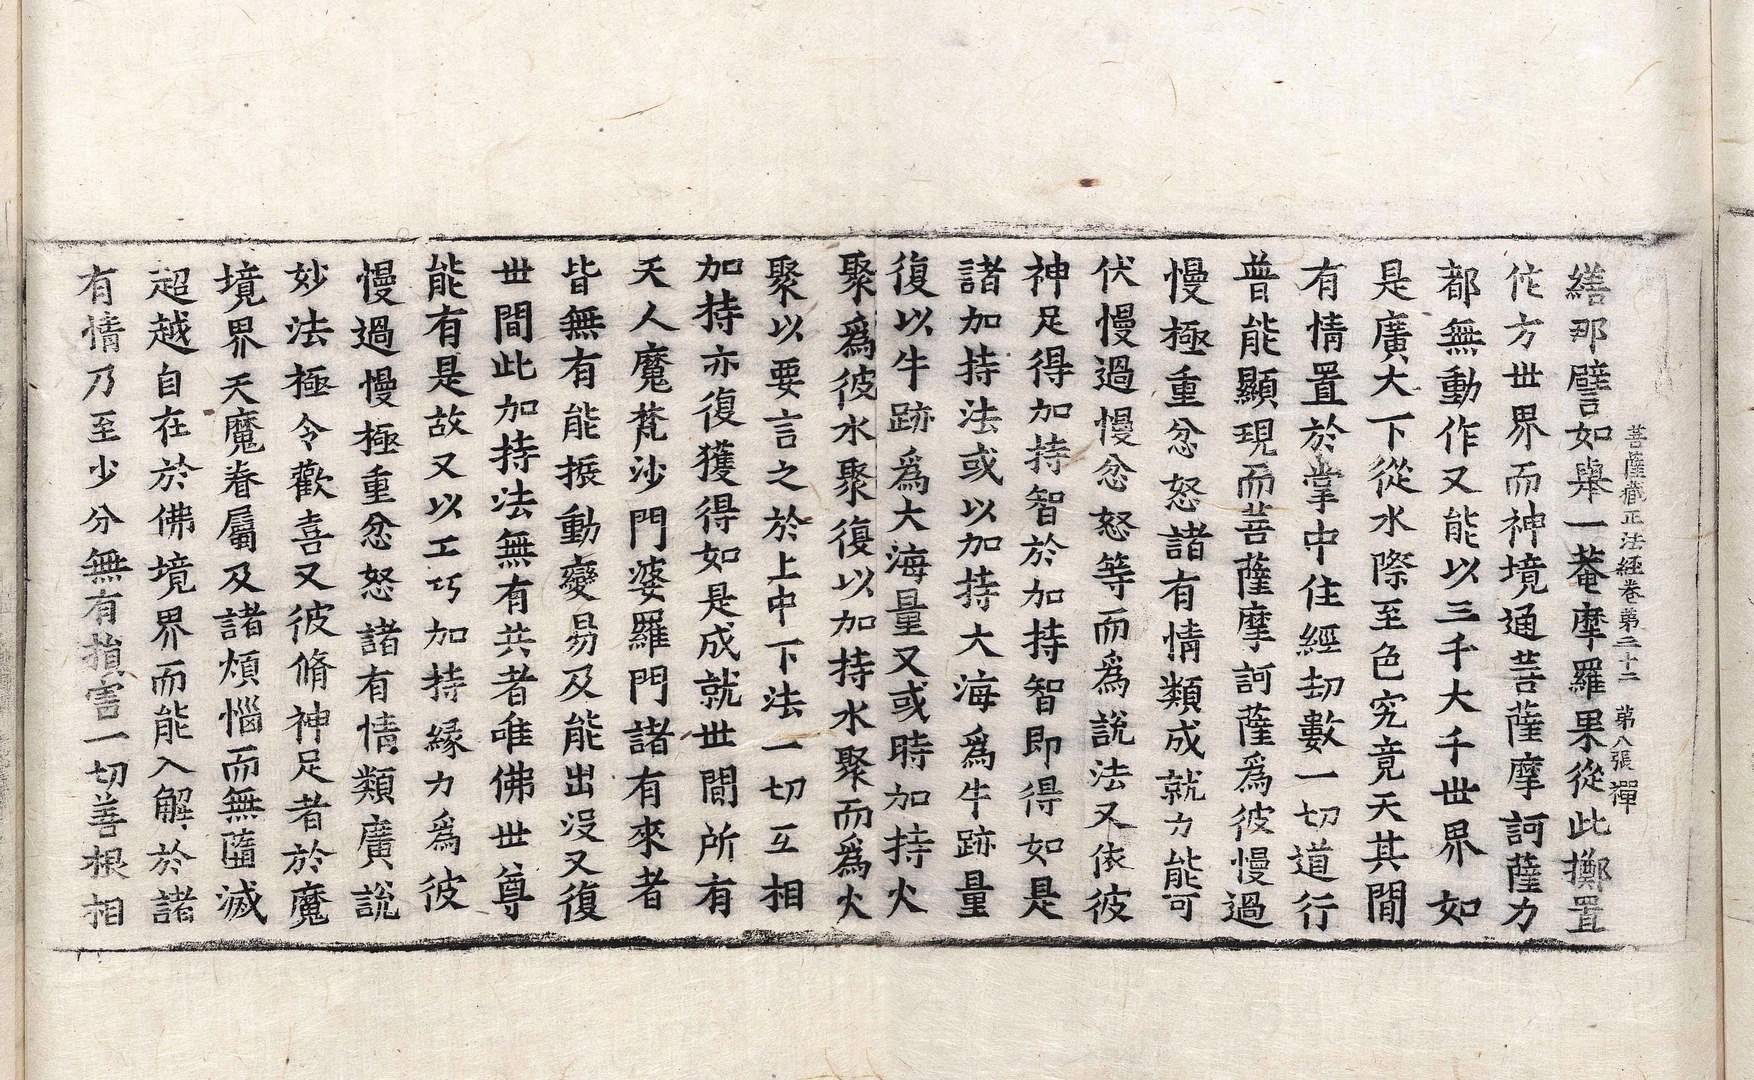 菩薩藏正法經卷第三十二 第八張 禪
繕那譬如舉一菴摩羅果從此擲置
佗方世界而神境通菩薩摩訶薩力
都無動作又能以三千大千世界如
是廣大下從水際至色究竟天其間
有情置於掌中住經劫數一切道行
普能顯現而菩薩摩訶薩為彼慢過
慢極重忿怒諸有情類成就力能可
伏慢過慢忿怒等而爲說法又依彼
神足得加持智於加持智即得如是
諸加持法或以加持大海爲牛跡量
復以牛跡爲大海量又或時加持火
聚爲彼水聚復以加持水聚而爲火
聚以要言之於上中下法一切互相
加持亦復獲得如是成就世間所有
天人魔梵沙門婆羅門諸有來者
皆無有能振動變易及能出沒又復
世間此加持法無有共者唯佛世尊
能有是故又以工巧加持緣力爲彼
慢過慢極重忿怒諸有情類廣說
妙法極令歡喜又彼脩神足者於魔
境界天魔眷屬及諸煩惱而無墮滅
超越自在於佛境界而能入解於諸
有情乃至少分無有損害一切善根相